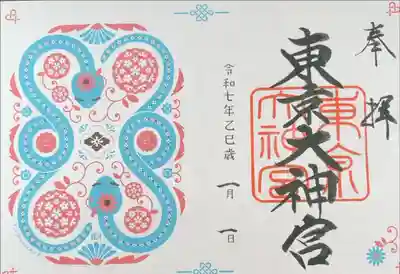 奉拝
東京大神宮
東京大神宮
令和七年乙巳歳 一月 一日